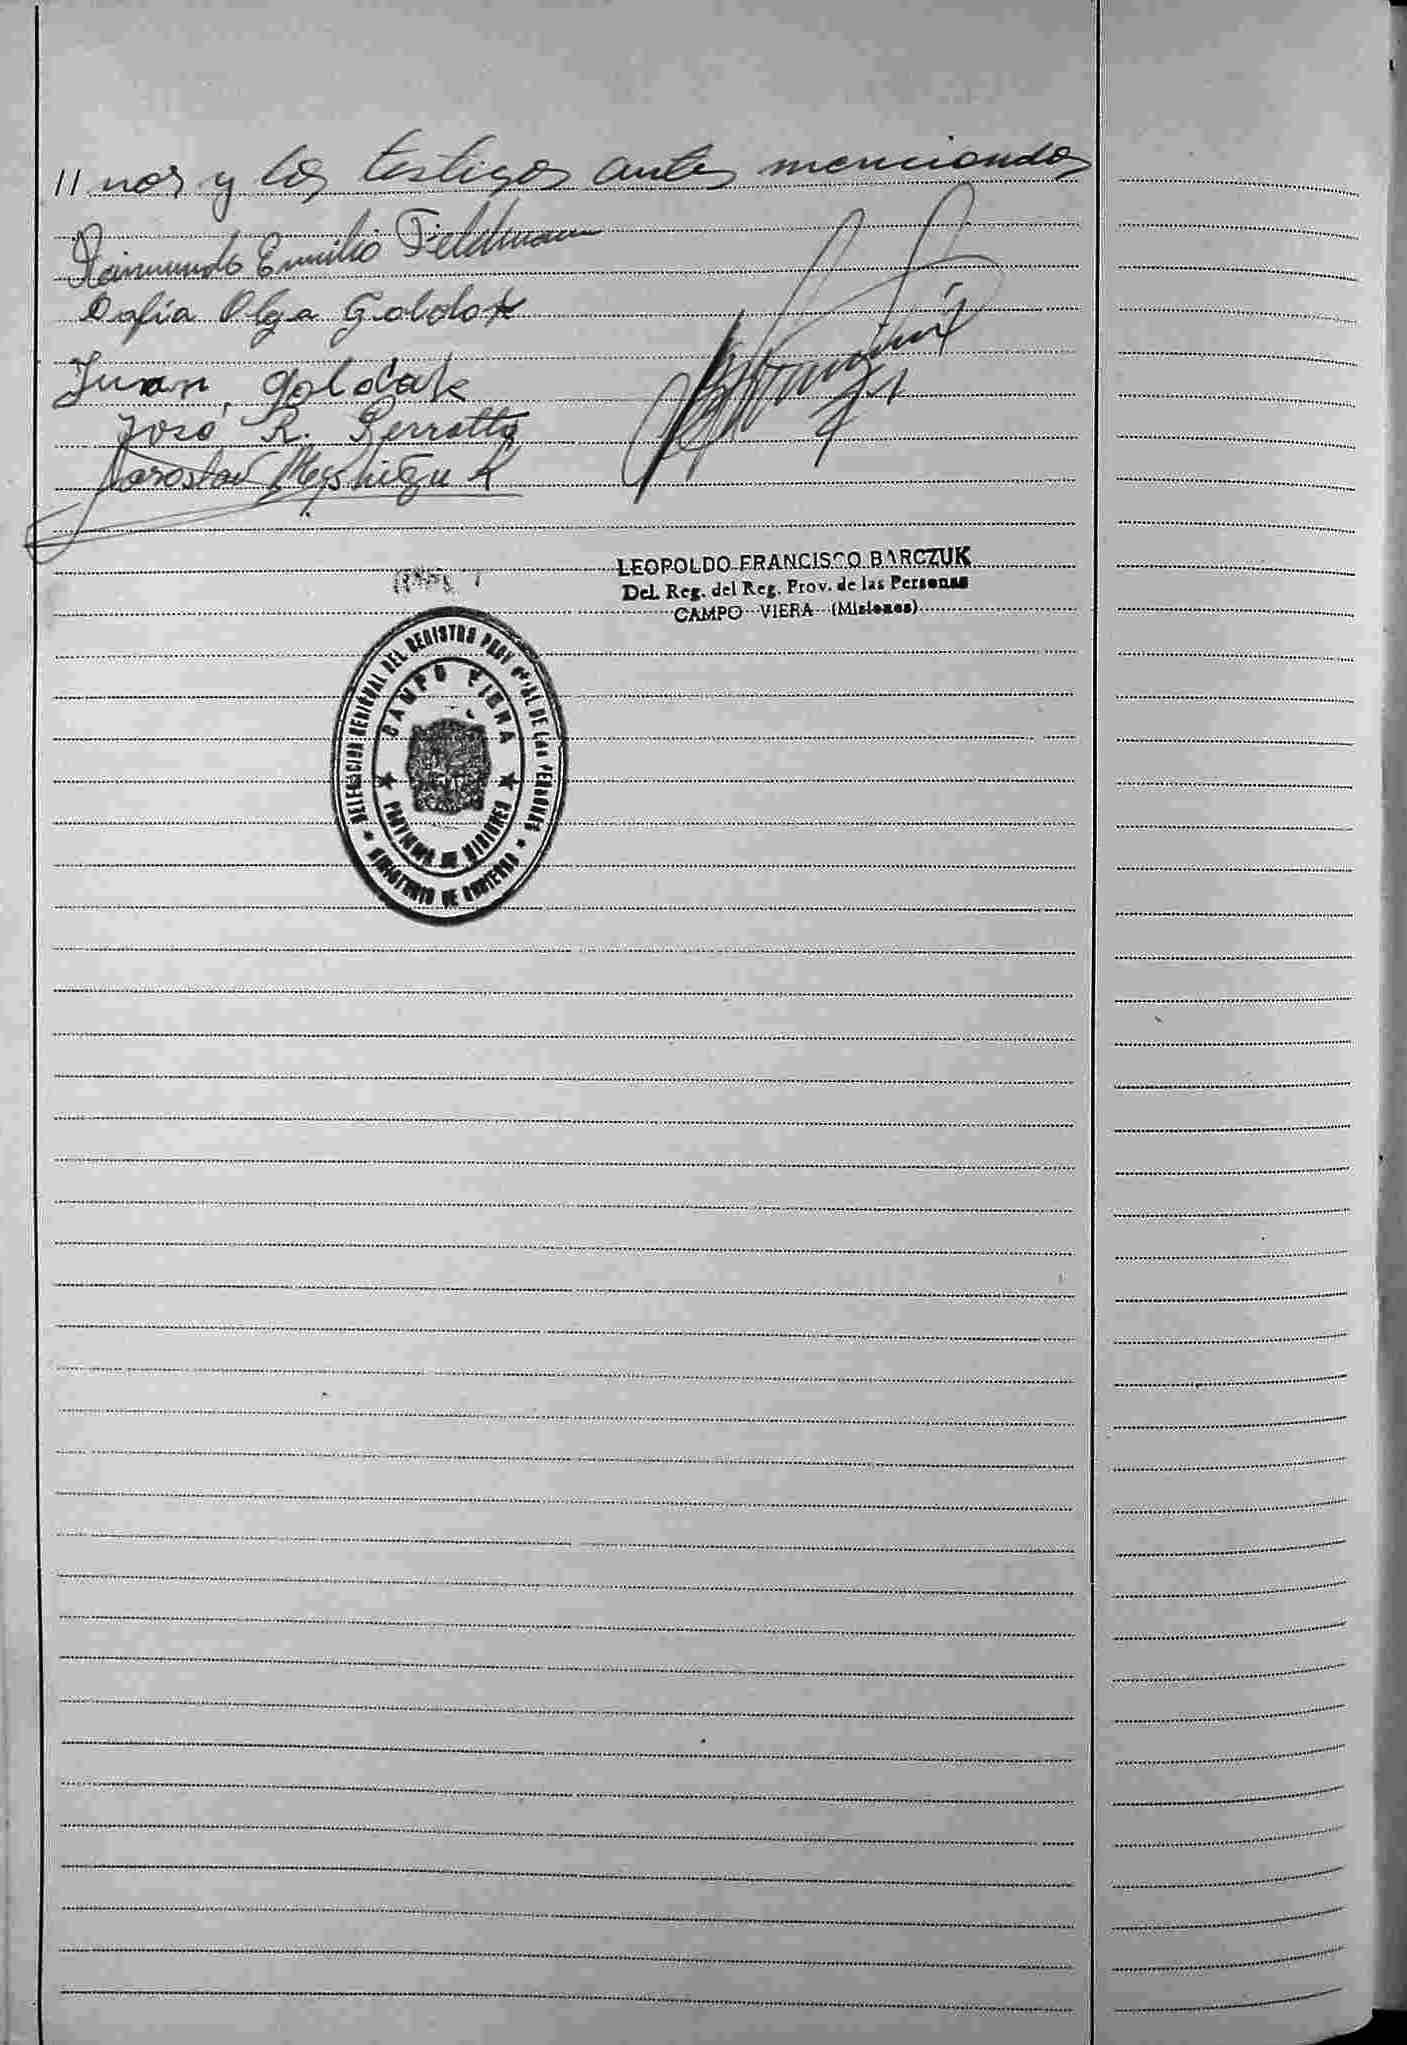 // nos y los testigos antes mencionados
Raimundo Emilio Feldmann
Olga
Juan Goldak
José R. Perrotta
Jaroslav
LEOPOLDO FRANCISCO BARCZUK
Del. Reg. del Reg. Prov. de las Personas
CAMPO VIERA (Misiones)
DELEGACION REGIONAL DEL REGISTRO PROVINCIAL DE LAS PERSONAS
CAMPO VIERA
PROVINCIA DE MISIONES
MINISTERIO DE GOBIERNO